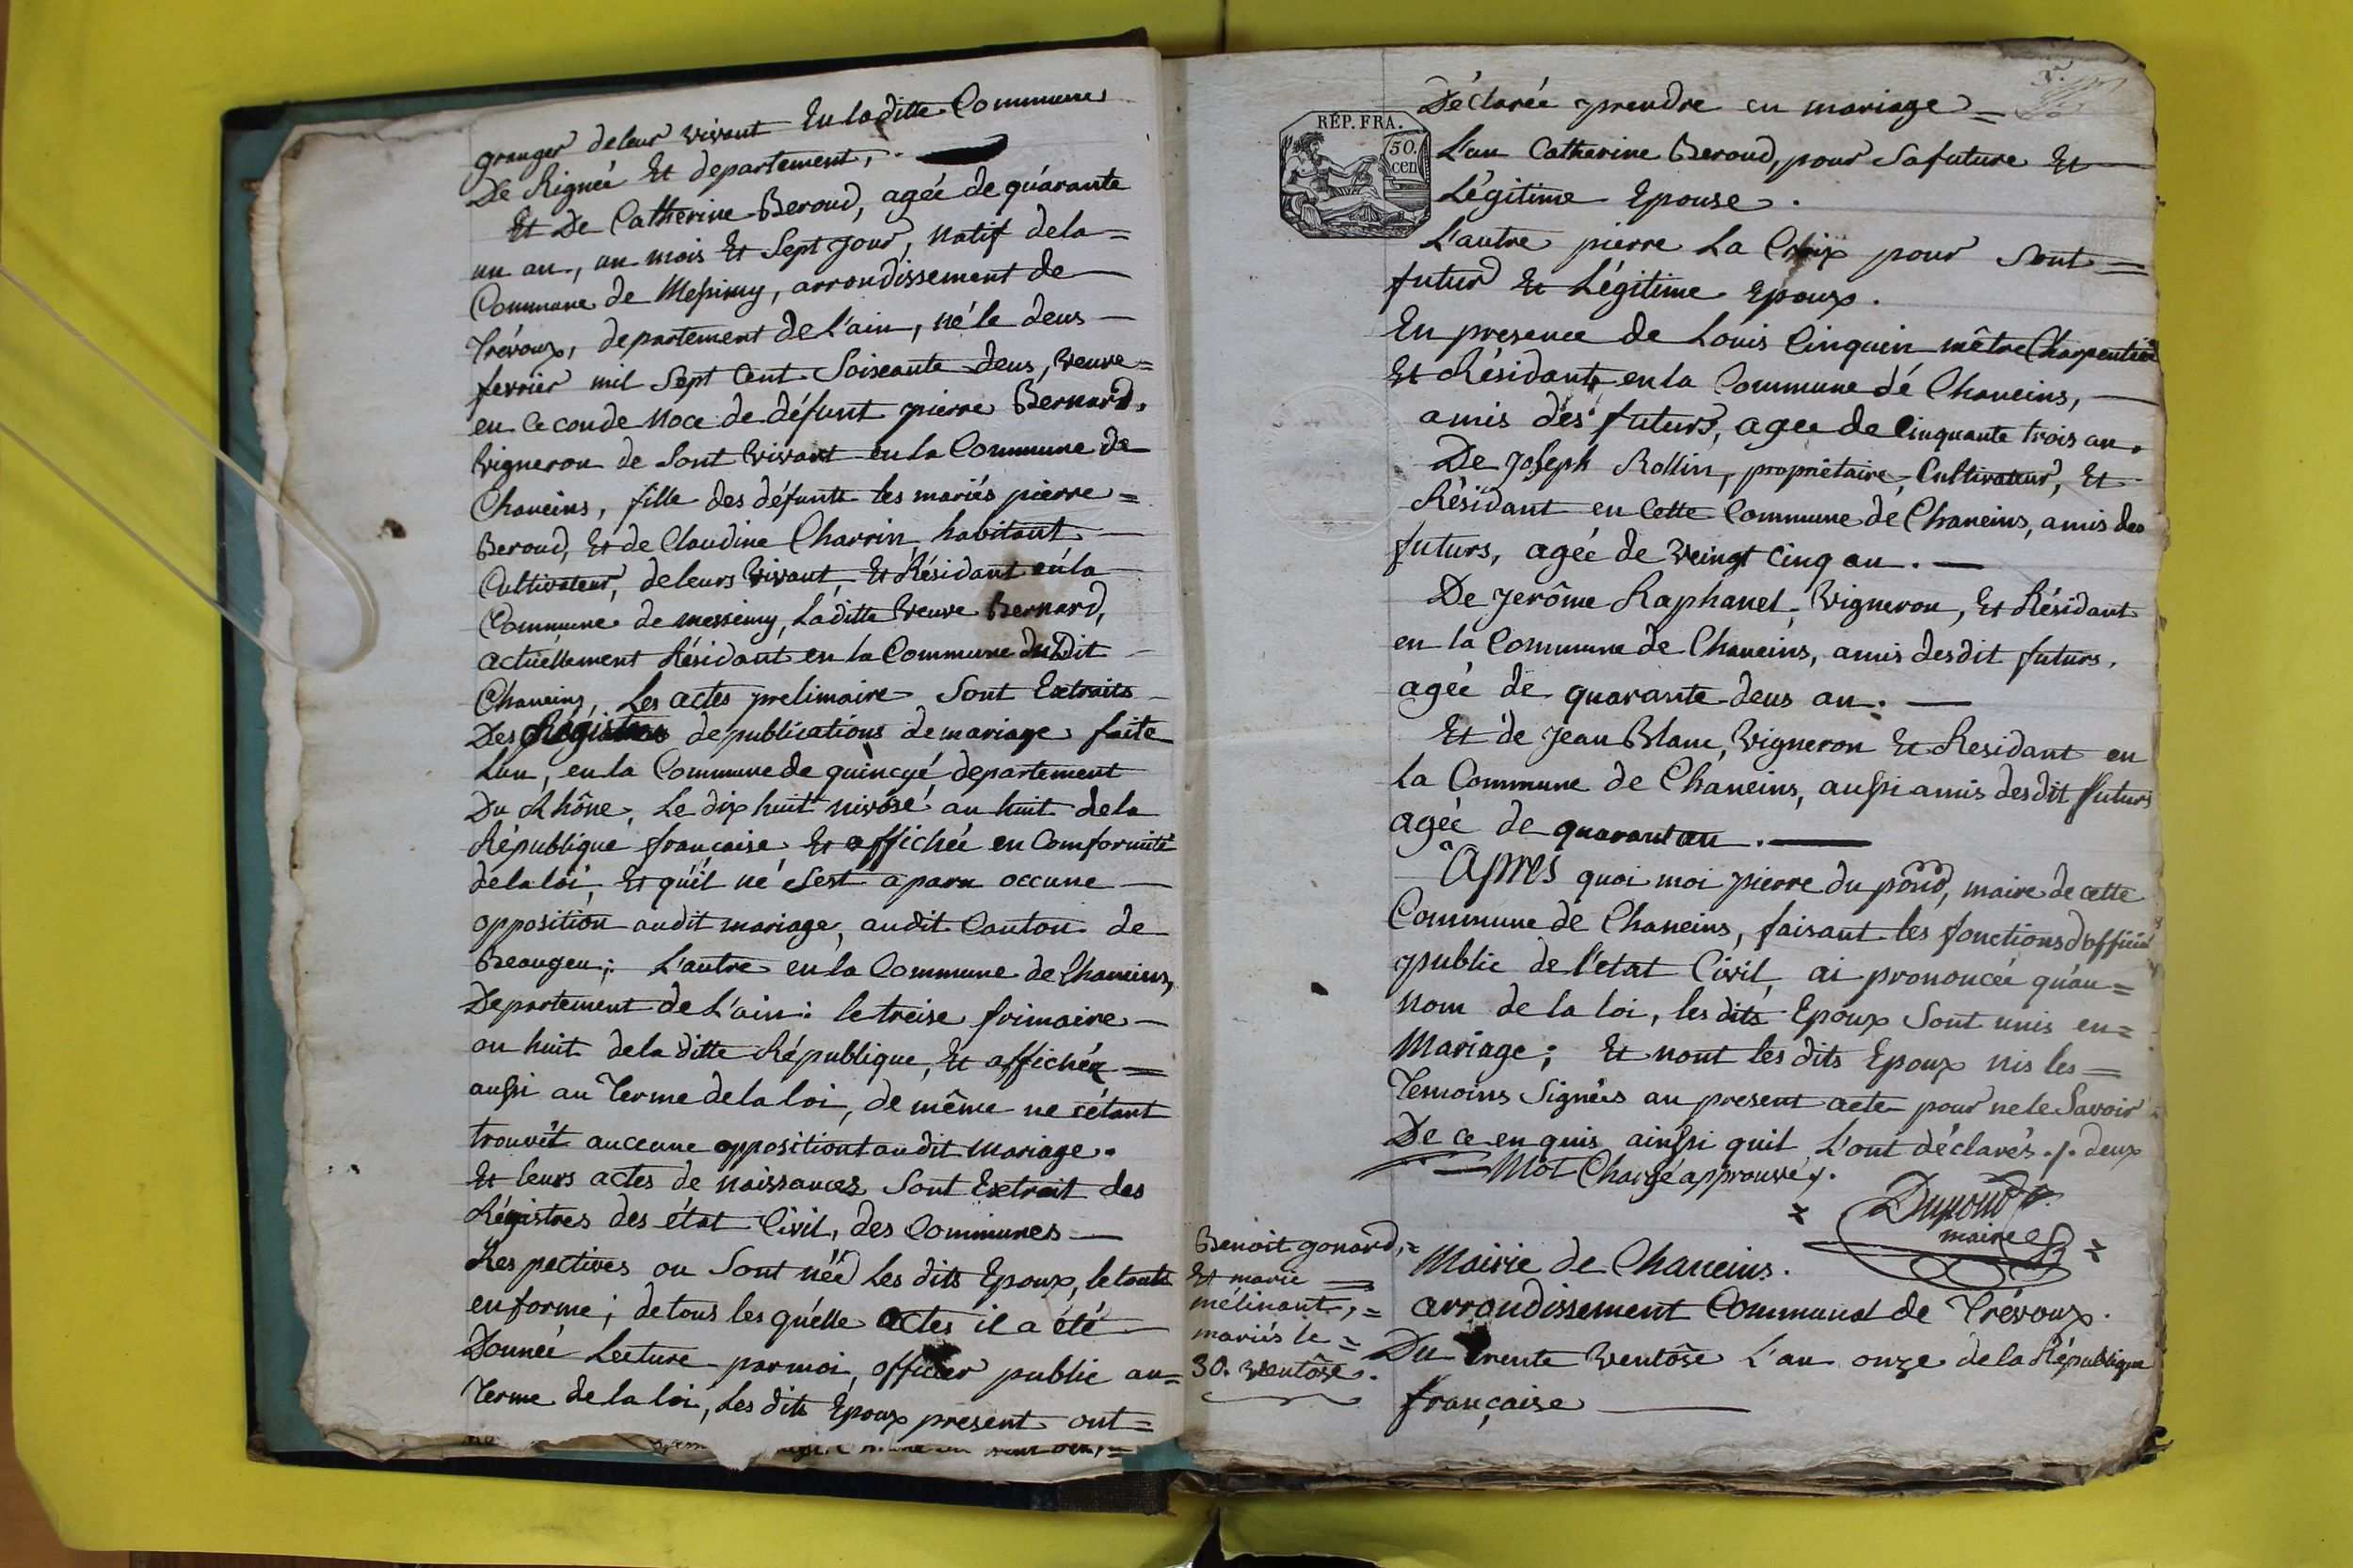 granger de leur vivant En la ditte Commune
De Rignée Et departement,
Et De Catherine Beroud, agée de quarante
un an, un mois Et Sept jour, natif de la =
Commune de Messimy, arrondissement de
Trévoux, departement de L'ain, né le deus
fevrier mil Sept Cent Soiscante deus, veuve =
en ceconde noce de défunt pierre Bernard,
vigneron de Sont vivant en la Commune de
Chaneins, fille des défunts les mariés pierre =
Beroud, Et de Claudine Charrin habitant
Cultivateur, de leurs vivant, Et Résidant en la
Commune de messimy, La ditte veuve Bernard,
actuellement Résidant en la Commune du Dit
Chaneins, Les actes prelimaire Sont Extraits
Des Régistres de publications de mariage, faite
Lun, en la Commune de quincyé departement
Du Rhône, Le dix huit nivôse an huit de la
République française Et affichée en Comformité
de la loi, Et quil né Sest a paru occune
opposition audit mariage, audit Canton de
Beaugeu; L'autre en la Commune de Chaneins,
Departement de L'ain: le treise frimaire
an huit de la ditte République, Et affichée =
aussi au Terme de la loi, de même ne cétant
trouvèt aucenne oppositiont audit mariage.
Et leurs actes de naissances Sont Extrait des
Régistres des état Civil, des Communes
Respectives ou Sont néé Les dits Epoux, le toute
en forme; de tous les quélle actes il a été
Donnée Lecture par moi, officier public au =
Terme de la loi, Les dits Epoux present ont =
Déclarée prendre en mariage =
L'un Catherine Beroud, pour Sa future Et
Légitime Epouse.
L'autre pierre La Croix pour Sont =
futur Et Légitime Epoux.
En presence de Louis Cinquin mêtre Charpentier
Et Résidant en la Commune dé Chaneins,
amis des futurs, agee de Cinquante trois an.
De Joseph Rollin, propriétaire, Cultivateur, Et
Résidant en Cette Commune de Chaneins, amis des
futurs, agée de veingt cinq an.
De Jerôme Raphanel, vigneron, Et Résidant
en la Commune de Chaneins, amis desdit futurs,
agée de quarante deus an.
Et de Jean Blanc, vigneron Et Residant en
La Commune de Chaneins, aussi amis desdit futurs
agée de quarant an.
Apres quoi moi pierre du pond, maire de cette
Commune de Chaneins, faisant les fonctions d'officié
public de l'etat Civil, ai prononcée qu'au =
nom de la loi, les dits Epoux Sont unis en =
Mariage; Et nont les dits Epoux nis les =
Temoins Signés au present acte pour ne le Savoir
De ce en quis ainssi quil L'ont déclarés ./. deux
Mot Chargé approuvé ./.
Dupond
maire
RÉP. FRA.
50.
cen
Benoit gonard, =
Et marie =
mélinant, =
mariés le =
30. ventôse.
Mairie de Chaneins.
arrondissement Communal de Trévoux.
Du trente ventôse L'an onze de la République
française